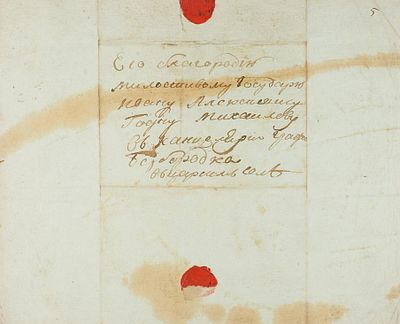 5
Его благородію
милостивому Государю
Ивану Алексеевичу
Гдну Михайлову
въ канцелярiи графа
Безбородка
въ царскомъ селѣ